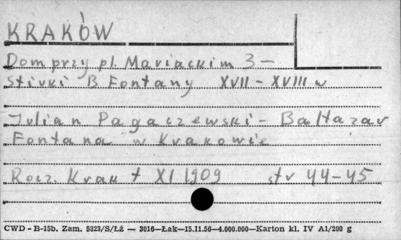 KRAKÓW
Dom przy pl. Mariackim 3 –
Stiuki B Fontany XVII – XVIII w
Julian Pagaczewski – Baltazar
Fontana w Krakowie
Rocz. Krak t XI 1909 str 44–45
CWD - B-15b. Zam. 5323/S/Łż — 3016—Łak—15.11.56—4.000.000—Karton kl. IV A1/200 g